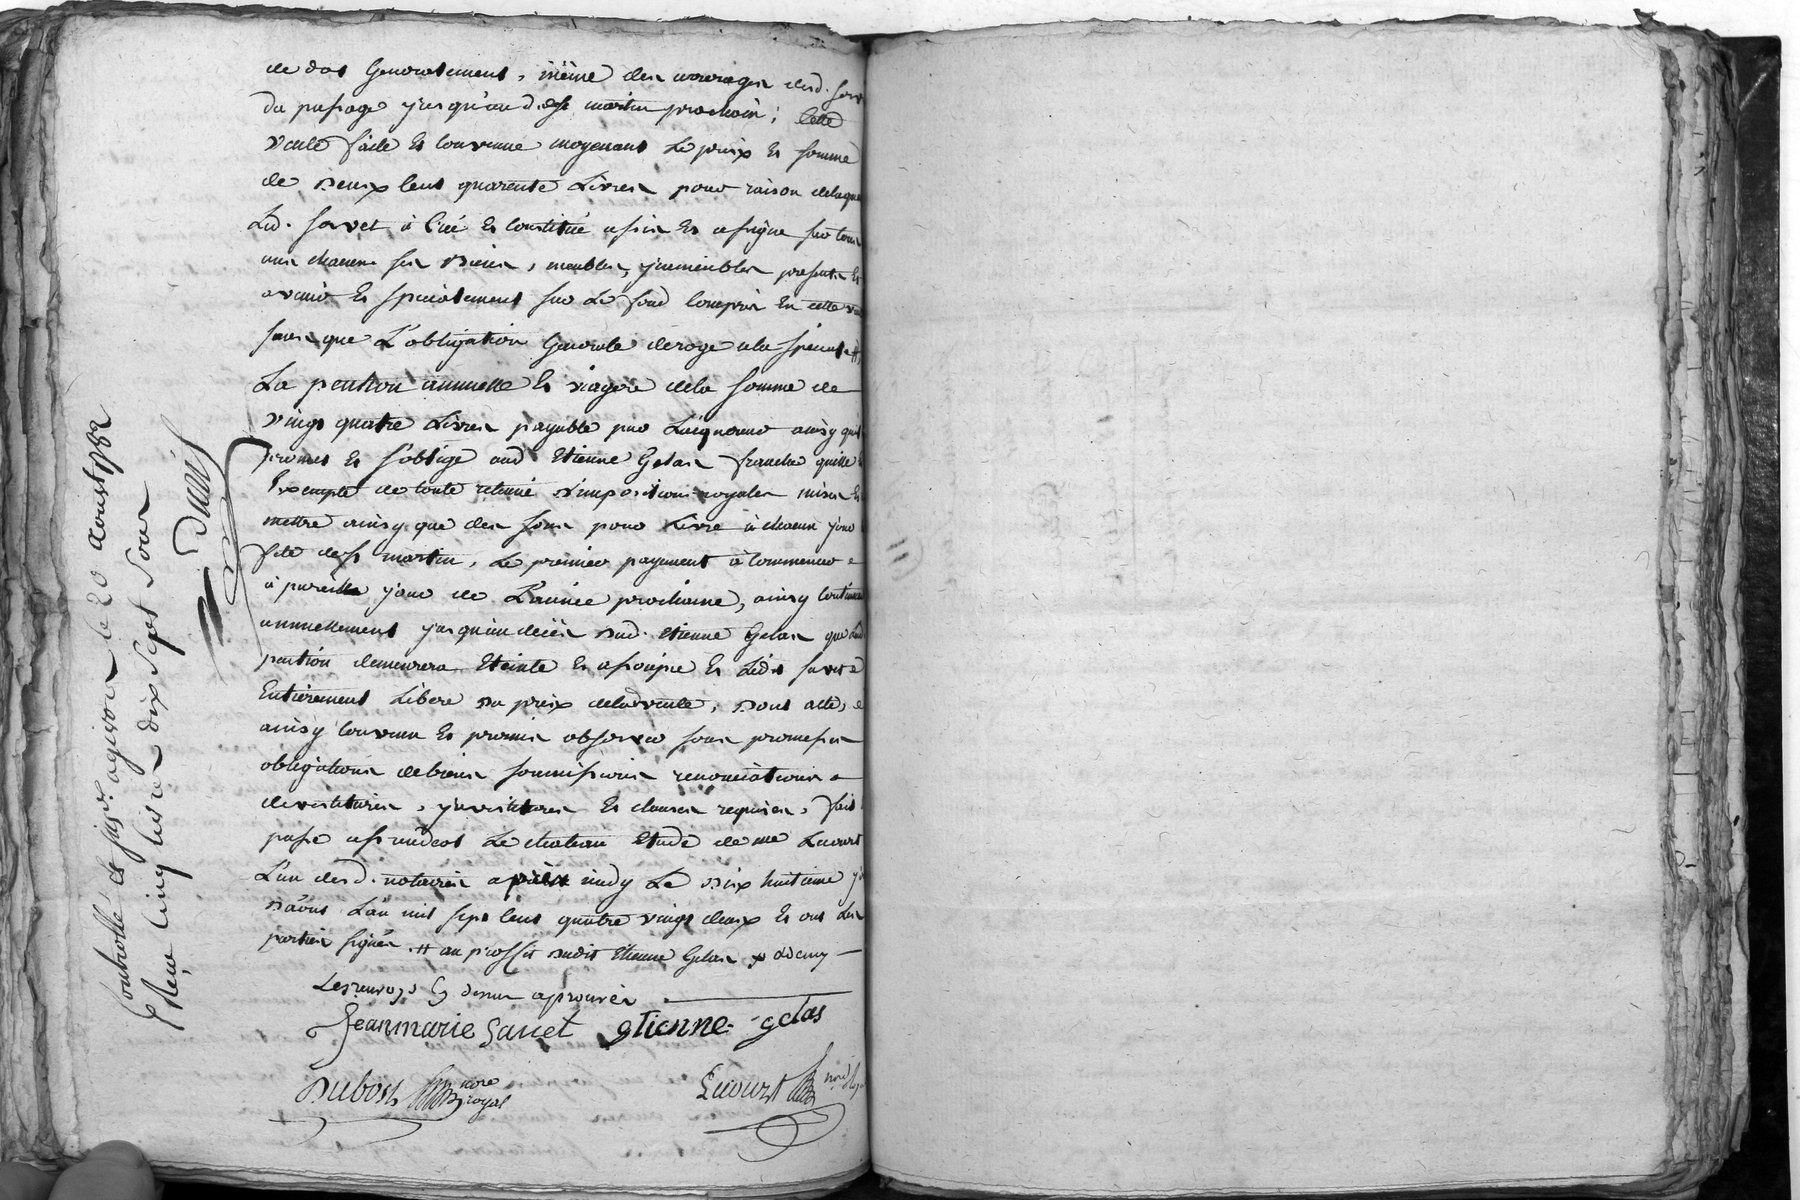 de dot generalement, même des arrerages dud. Savet
du passage jusqu'au d. st martin prochain; cette
vente faite et convenue moyenant le prix et somme
de deux cent quarente livres pour raison delaquelle
Led. Savet à créé et constitué assis et assigné sur tous
uns chacuns ses biens, meubles, jmmeubles presents et
avenir et specialement sur le fond compris en cette vente
sans que L'obligation generale deroge ala speciale #,
La pention annuelle et viagere dela somme de
vingt quatre Livres payable par Lacquereur ainsy quil
promet et s'oblige aud Etienne Gelas franche quitte et
Exempte de toute retenue d'impositions royales mises et
mettre ainsy que des sous pour Livre à chacun jour
fete de st martin, Le premier payement à commencer
à pareille jour de L'année prochaine, ainsy continuer
annuellement jusqu'au decès dud. Etienne Gelas que lad
pention demeurera Eteinte et assoupie et Ledit Savet
Entierement Libere du prix deladvente, dont acte,
ainsy convenu et promis observer sous promesses
obligations de biens soumissions renonciations
devestitures, jnvestitures et clauses requises, fait
passé a st Le chateau Etude de me Lecourt
L'un desd. notaires apres midy Le dix huitieme jour
D'aout L'an mil sept cent quatre vingt deux et ont Les
parties signés. # au proffit dudit Etienne Gelas
Les renvoys cy dessus aprouvés
Jeanmarie Savet Etienne gelas
Dubost nore royal
Lecourt
Controllé le 20 aoust 1782
Reçu cinq livres dix sept sous